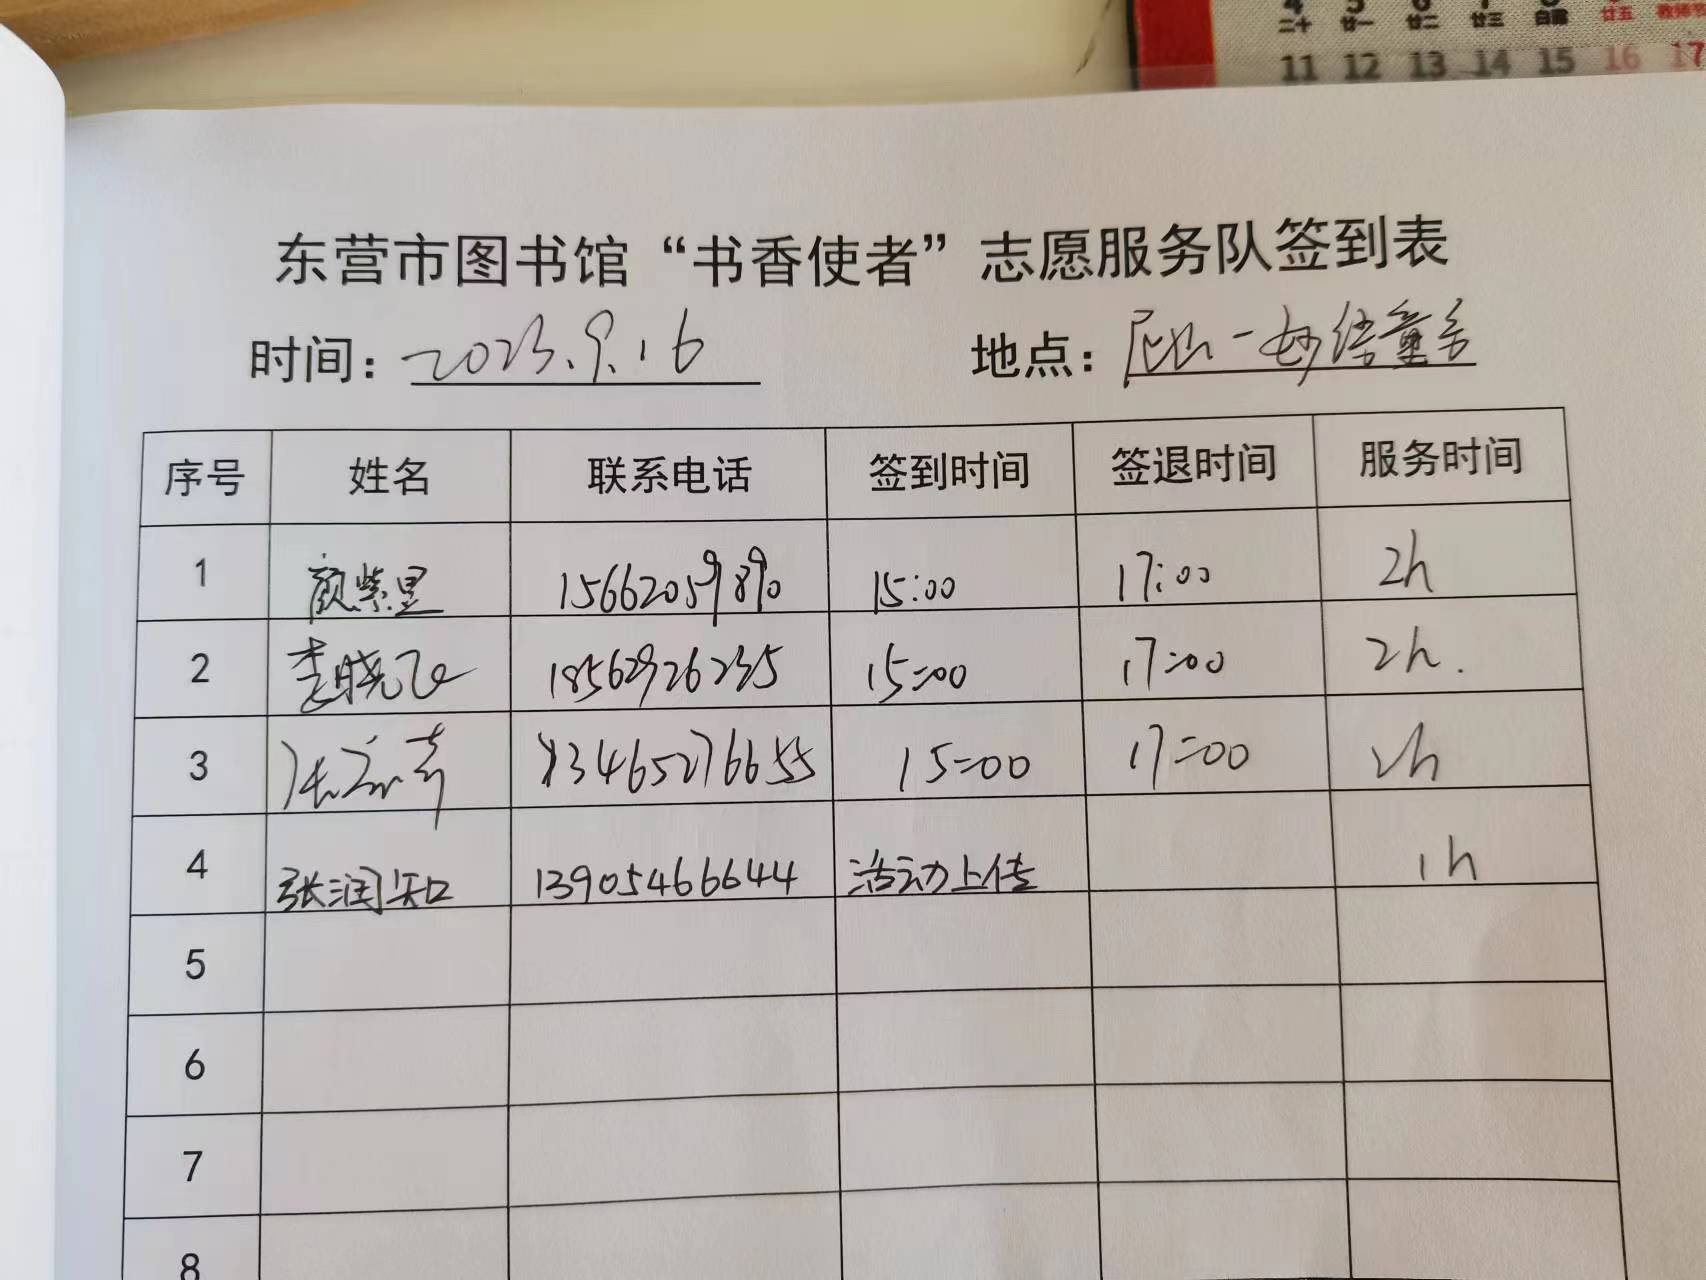 4 5 6 7 8
二十 廿一 廿二 廿三 白露 廿五 教师节
11 12 13 14 15 16 17
东营市图书馆“书香使者”志愿服务队签到表
时间：2023.9.16 地点：尼山-妙语童音
序号 姓名 联系电话 签到时间 签退时间 服务时间
1 颜紫昱 15662059890 15:00 17:00 2h
2 李晓飞 18562926235 15:00 17:00 2h.
3 13465276655 15:00 17:00 2h
4 张润知 13905466644 活动上传 1h
5
6
7
8